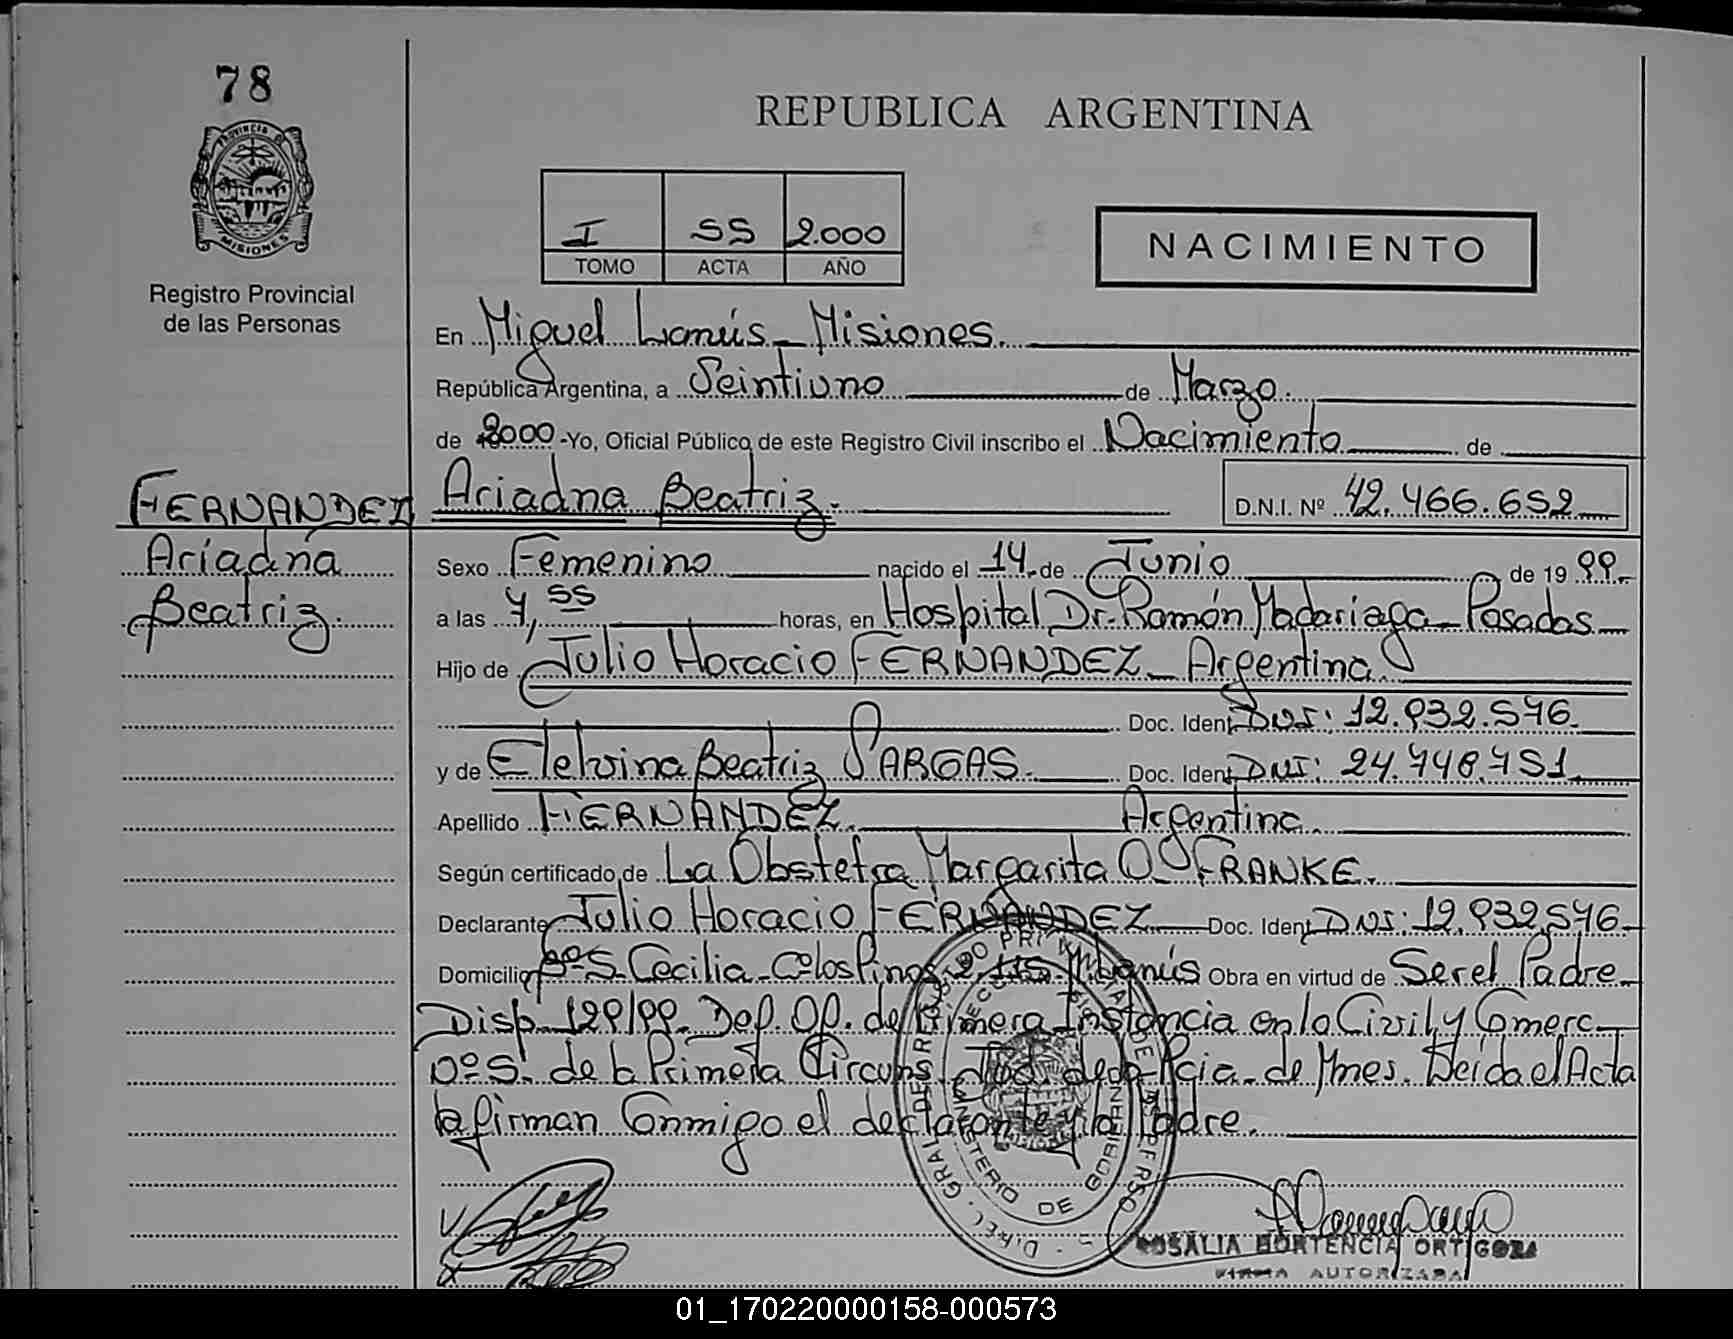 78
REPUBLICA ARGENTINA
PROVINCIA DE
MISIONES
I 55 2.000
TOMO ACTA AÑO
NACIMIENTO
Registro Provincial
de las Personas
En Miguel Lanús - Misiones.
República Argentina, a Veintiuno de Marzo.
de 2000 - Yo, Oficial Público de este Registro Civil inscribo el Nacimiento de
FERNANDEZ Ariadna Beatriz. D.N.I. Nº 42.466.652
Ariadna
Beatriz.
Sexo Femenino nacido el 14 de Junio de 19 99.
a las 7,55 horas, en Hospital Dr. Ramón Madariaga - Posadas
Hijo de Julio Horacio FERNANDEZ - Argentina
Doc. Ident. DNI: 12.932.576.
y de Etelvina Beatriz VARGAS. Doc. Ident. DNI: 24.778.751
Apellido FERNANDEZ. Argentina.
Según certificado de La Obstetra Margarita O. FRANKE.
Declarante Julio Horacio FERNANDEZ Doc. Ident. DNI: 12.932.576
Domicilio Bº S. Cecilia - C. los Pinos 2.115 - M. Lanús Obra en virtud de Ser el Padre
Disp. 129/99. Def. Of. de Primera Instancia en lo Civil y Comerc.
Nº 5. de la Primera Circuns. Jud. de la Pcia. de Mnes. Leída el Acta
la firman Conmigo el declarante y la Madre.
ROSALIA HORTENCIA ORTIGOZA
FIRMA AUTORIZADA
01_170220000158-000573